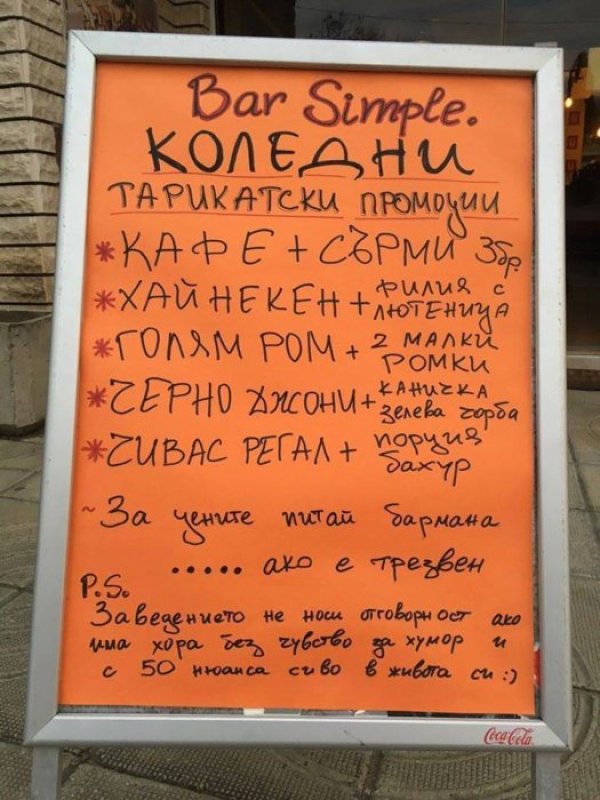 Bar Simple.
КОЛЕДНИ
ТАРИКАТСКИ ПРОМОЦИИ
* КАФЕ + СЪРМИ 3бр.
* ХАЙНЕКЕН + ФИЛИЯ С
ЛЮТЕНИЦА
* ГОЛЯМ РОМ + 2 МАЛКИ
РОМКИ
* ЧЕРНО ДЖОНИ + КАНИЧКА
зелева чорба
* ЧИВАС РЕГАЛ + порция
бахур
~ За цените питай бармана
..... ако е трезвен
P.S.
Заведението не носи отговорност ако
има хора без чувство за хумор и
с 50 нюанса сиво в живота си :)
Coca-Cola